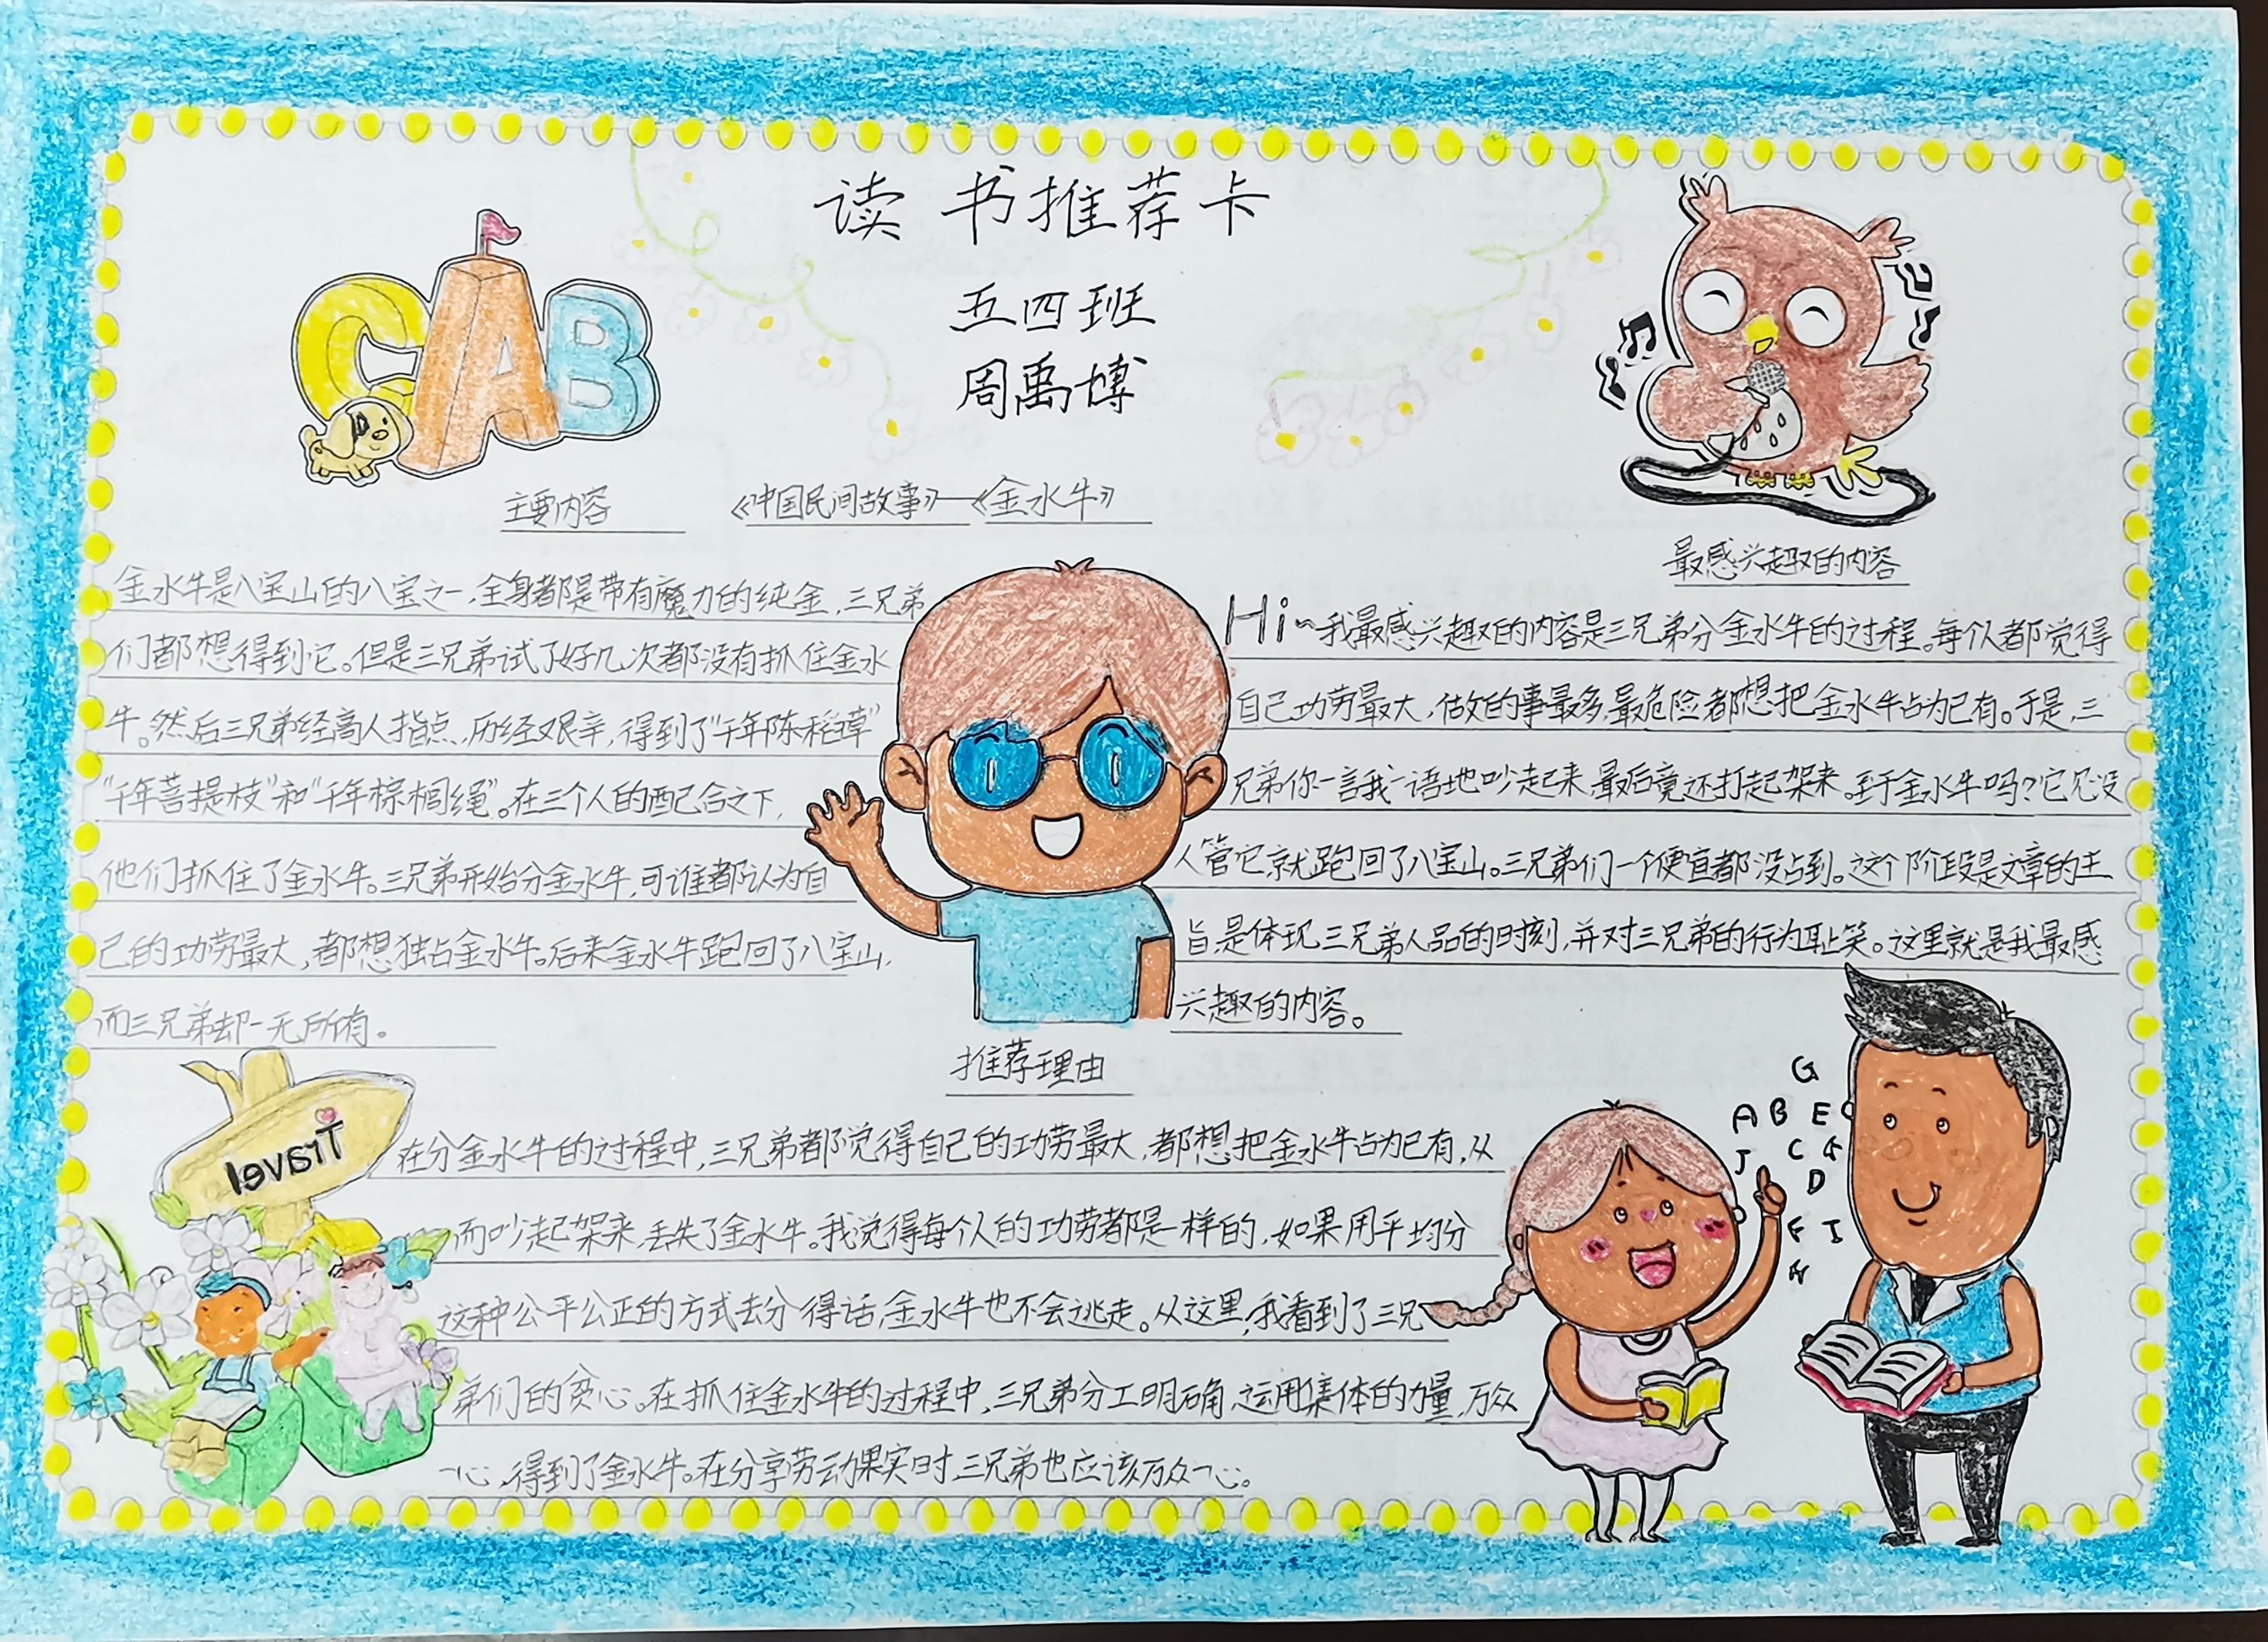 读书推荐卡
五四班
周禹博
CAB
主要内容
《中国民间故事》—《金水牛》
金水牛是八宝山的八宝之一,全身都是带有魔力的纯金,三兄弟
们都想得到它。但是三兄弟试了好几次都没有抓住金水
牛。然后三兄弟经高人指点,历经艰辛,得到了"千年陈稻草"
"千年菩提枝"和"千年棕榈绳"。在三个人的配合之下,
他们抓住了金水牛。三兄弟开始分金水牛,可谁都认为自
己的功劳最大,都想独占金水牛。后来金水牛跑回了八宝山,
而三兄弟却一无所有。
最感兴趣的内容
Hi~我最感兴趣的内容是三兄弟分金水牛的过程。每个人都觉得
自己功劳最大,做的事最多,最危险都想把金水牛占为己有。于是,三
兄弟你一言我一语地吵起来,最后竟还打起架来。至于金水牛吗?它见没
人管它,就跑回了八宝山。三兄弟们一个便宜都没占到。这个阶段是文章的主
旨,是体现三兄弟人品的时刻,并对三兄弟的行为耻笑。这里就是我最感
兴趣的内容。
推荐理由
在分金水牛的过程中,三兄弟都觉得自己的功劳最大,都想把金水牛占为己有,从
而吵起架来,丢失了金水牛。我觉得每个人的功劳都是一样的,如果用平均分
这种公平公正的方式去分得话,金水牛也不会逃走。从这里,我看到了三兄
弟们的贪心。在抓住金水牛的过程中,三兄弟分工明确,运用集体的力量,万众
一心,得到了金水牛。在分享劳动果实时,三兄弟也应该万众一心。
Travel
G
A B E
J C
D
F I